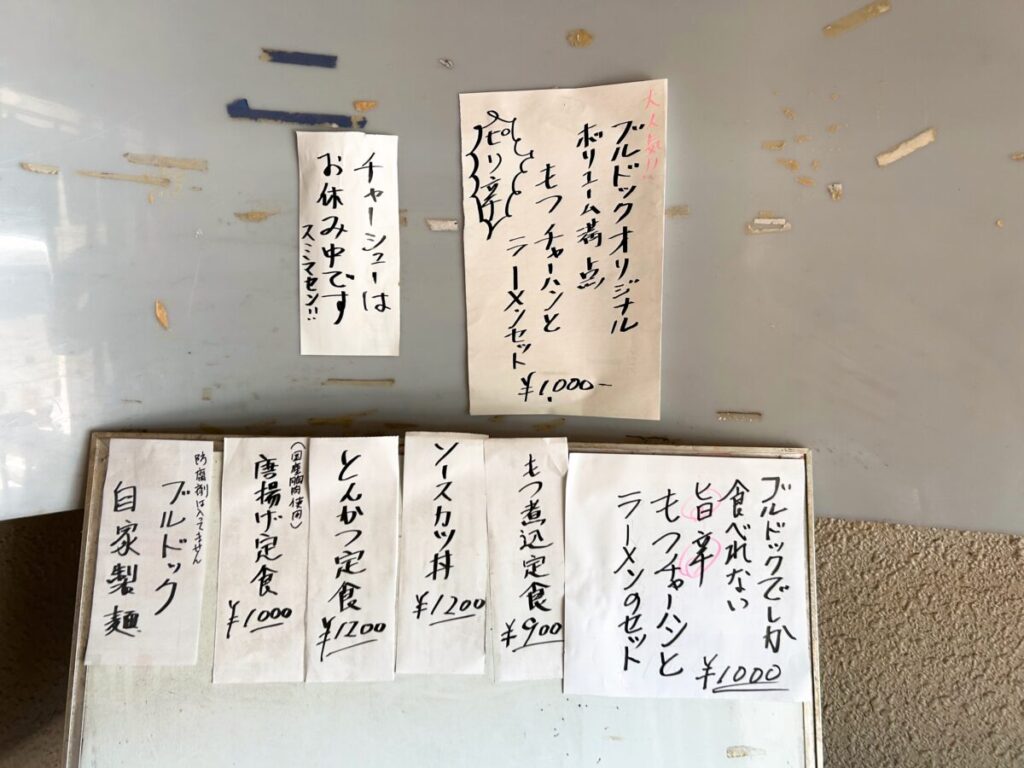 大人気!!
ブルドックオリジナル
ボリューム満点
もつチャーハンと
ラーメンセット
¥1,000-
ピリ辛
チャーシューは
お休み中です
スミマセン!!
ブルドックでしか
食べれない
旨辛
もつチャーハンと
ラーメンのセット
¥1000
もつ煮込定食
¥900
ソースカツ丼
¥1200
とんかつ定食
¥1200
(国産鶏肉使用)
唐揚げ定食
¥1000
防腐剤は入てません
ブルドック
自家製麺